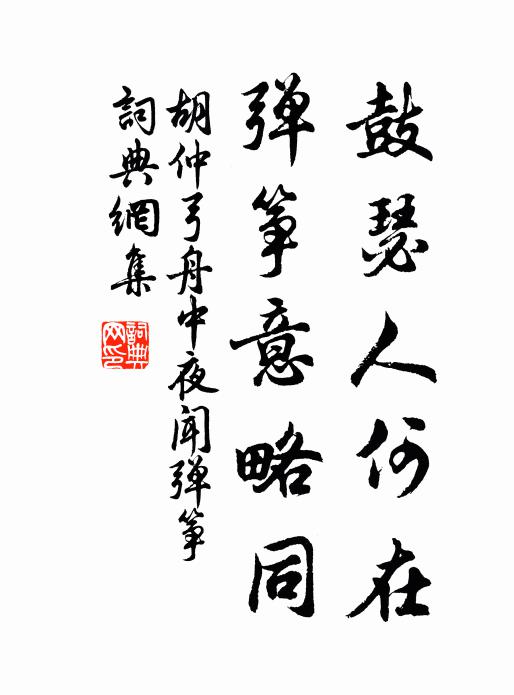 鼓瑟人何在
弹筝意略同
胡仲弓舟中夜闻弹筝
詞典網集
詞典网印